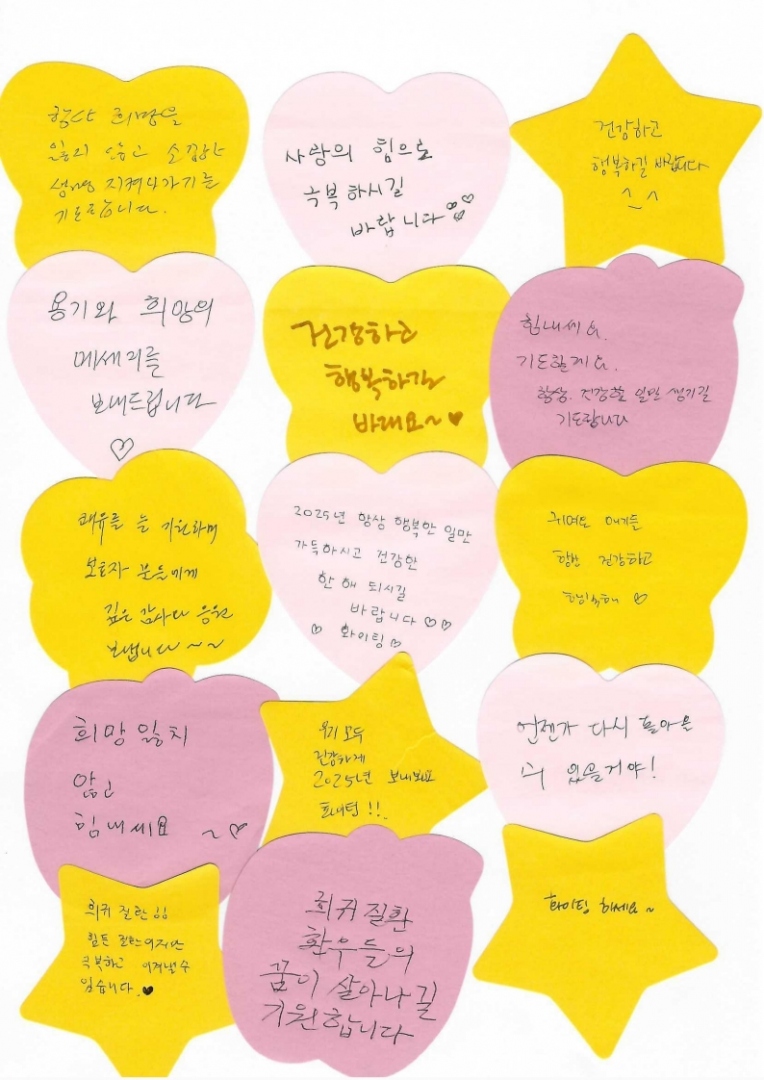 항상 희망을
잃지 않고 소중한
생명 지켜나가기를
기도합니다.
사랑의 힘으로
극복하시길
바랍니다
건강하고
행복하길 바랍니다
^_^
용기와 희망의
메세지를
보내드립니다
♡
건강하고
행복하길
바래요~♥
힘내세요.
기도할게요.
항상. 건강할 일만 생기길
기도합니다
쾌유를 늘 기원하며
보호자 분들에게
깊은 감사와 응원
보냅니다~~
2025년 항상 행복한 일만
가득하시고 건강한
한 해 되시길
바랍니다♡♡
♡ 화이팅♡
귀여운 애기들
항상 건강하고
행복해 ♡
희망 잃치
않고
힘내세요 ~♡
우리 모두
건강하게
2025년 보내보자
화이팅!!.
언젠가 다시 돌아올
수 있을거야!
희귀 질환!!
힘든 질환이지만
극복하고 이겨낼 수
있습니다.♥
희귀질환
환우들의
꿈이 살아나길
기원합니다
화이팅 하세요~